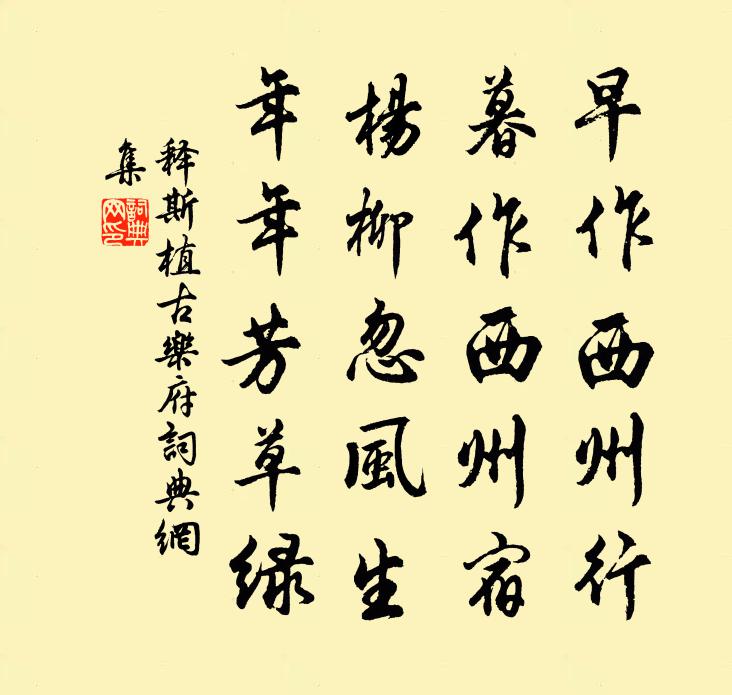 早作西州行
暮作西州宿
楊柳忽風生
年年芳草绿
释斯植古樂府詞典網
集
詞典网印